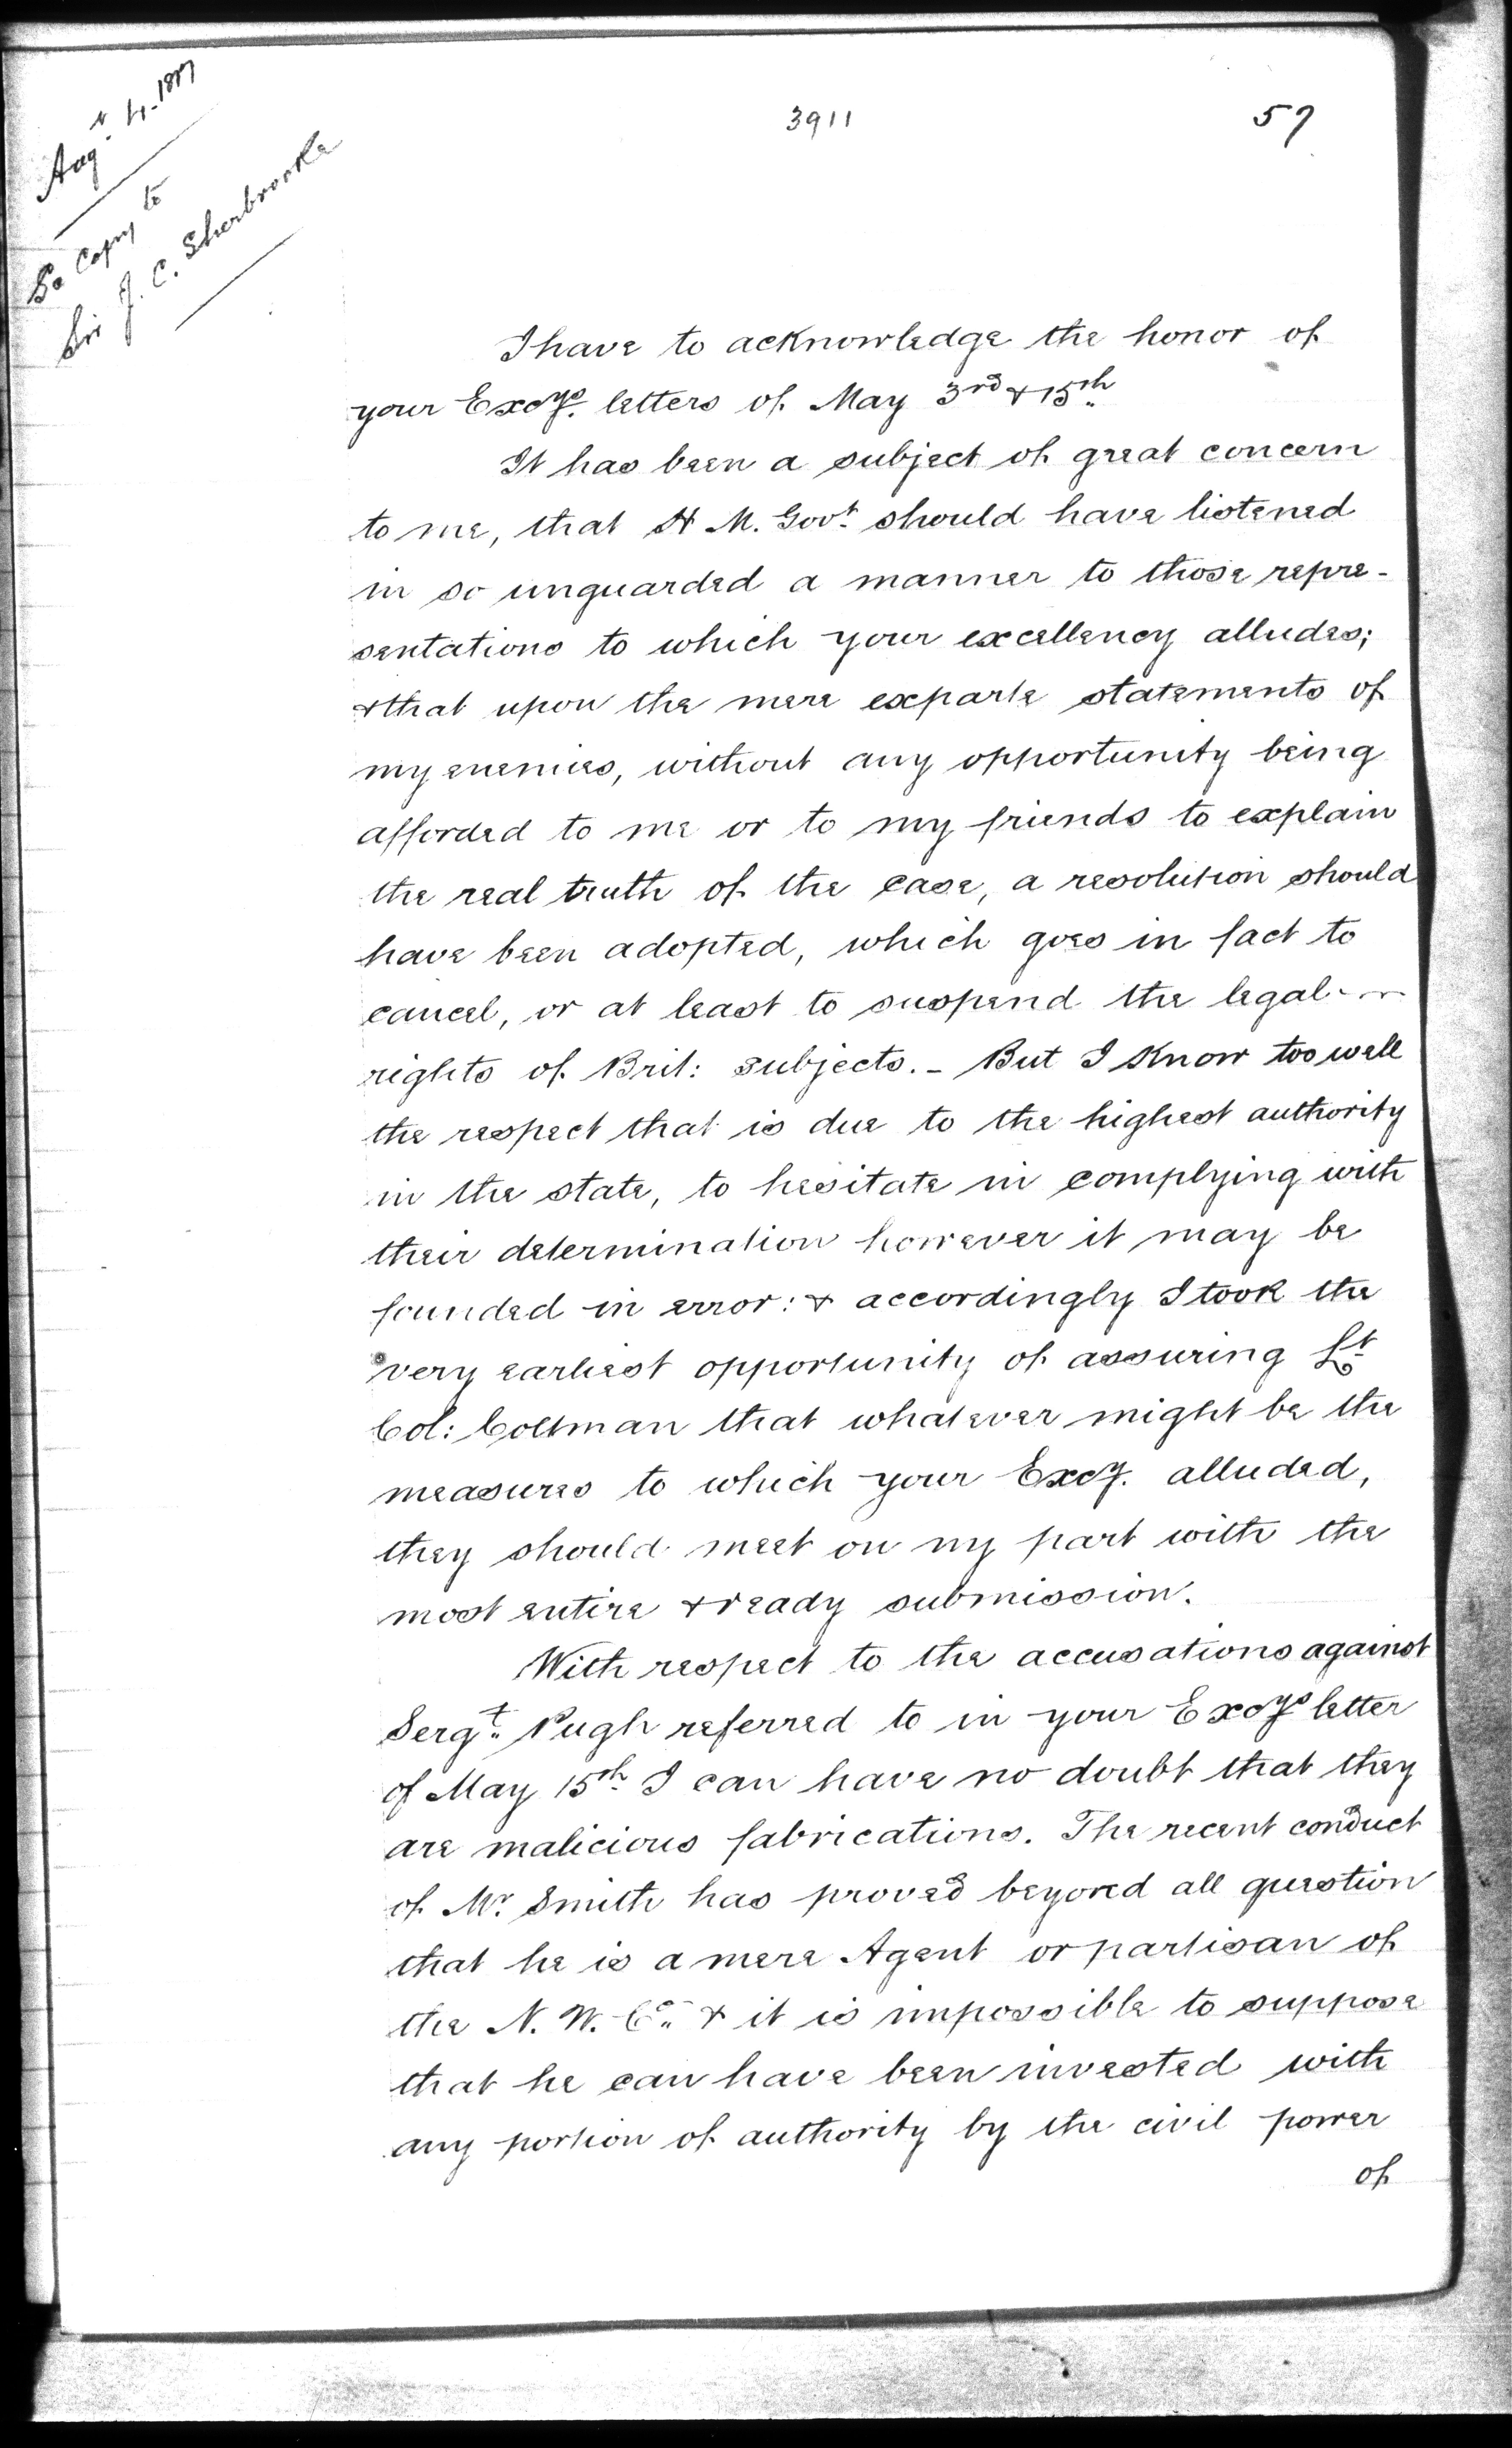 3911
57
Augt 4 - 1817
Copy to
Sir J. C. Sherbrooke
I have to acknowledge the honor of
your Excys. letters of May 3rd & 15th
It has been a subject of great concern
to me, that H M. Govt. should have listened
in so unguarded a manner to those repre-
sentations to which your excellency alludes;
& that upon the mere exparte statements of
my enemies, without any opportunity being
afforded to me or to my friends to explain
the real truth of the case, a resolution should
have been adopted, which goes in fact to
cancel, or at least to suspend the legal
rights of Brit: subjects. - But I Know too well
the respect that is due to the highest authority
in the state, to hesitate in complying with
their determination however it may be
founded in error: & accordingly I took the
very earliest opportunity of assuring Lt
Col: Coltman that whatever might be the
measures to which your Excy. alluded,
they should meet on my part with the
most entire & ready submission.
With respect to the accusations against
Sergt. Pugh referred to in your Excys letter
of May 15th I can have no doubt that they
are malicious fabrications. The recent conduct
of Mr. Smith has proved beyond all question
that he is a mere Agent or partisan of
the N. W. Co. & it is impossible to suppose
that he can have been invested with
any portion of authority by the civil power
of